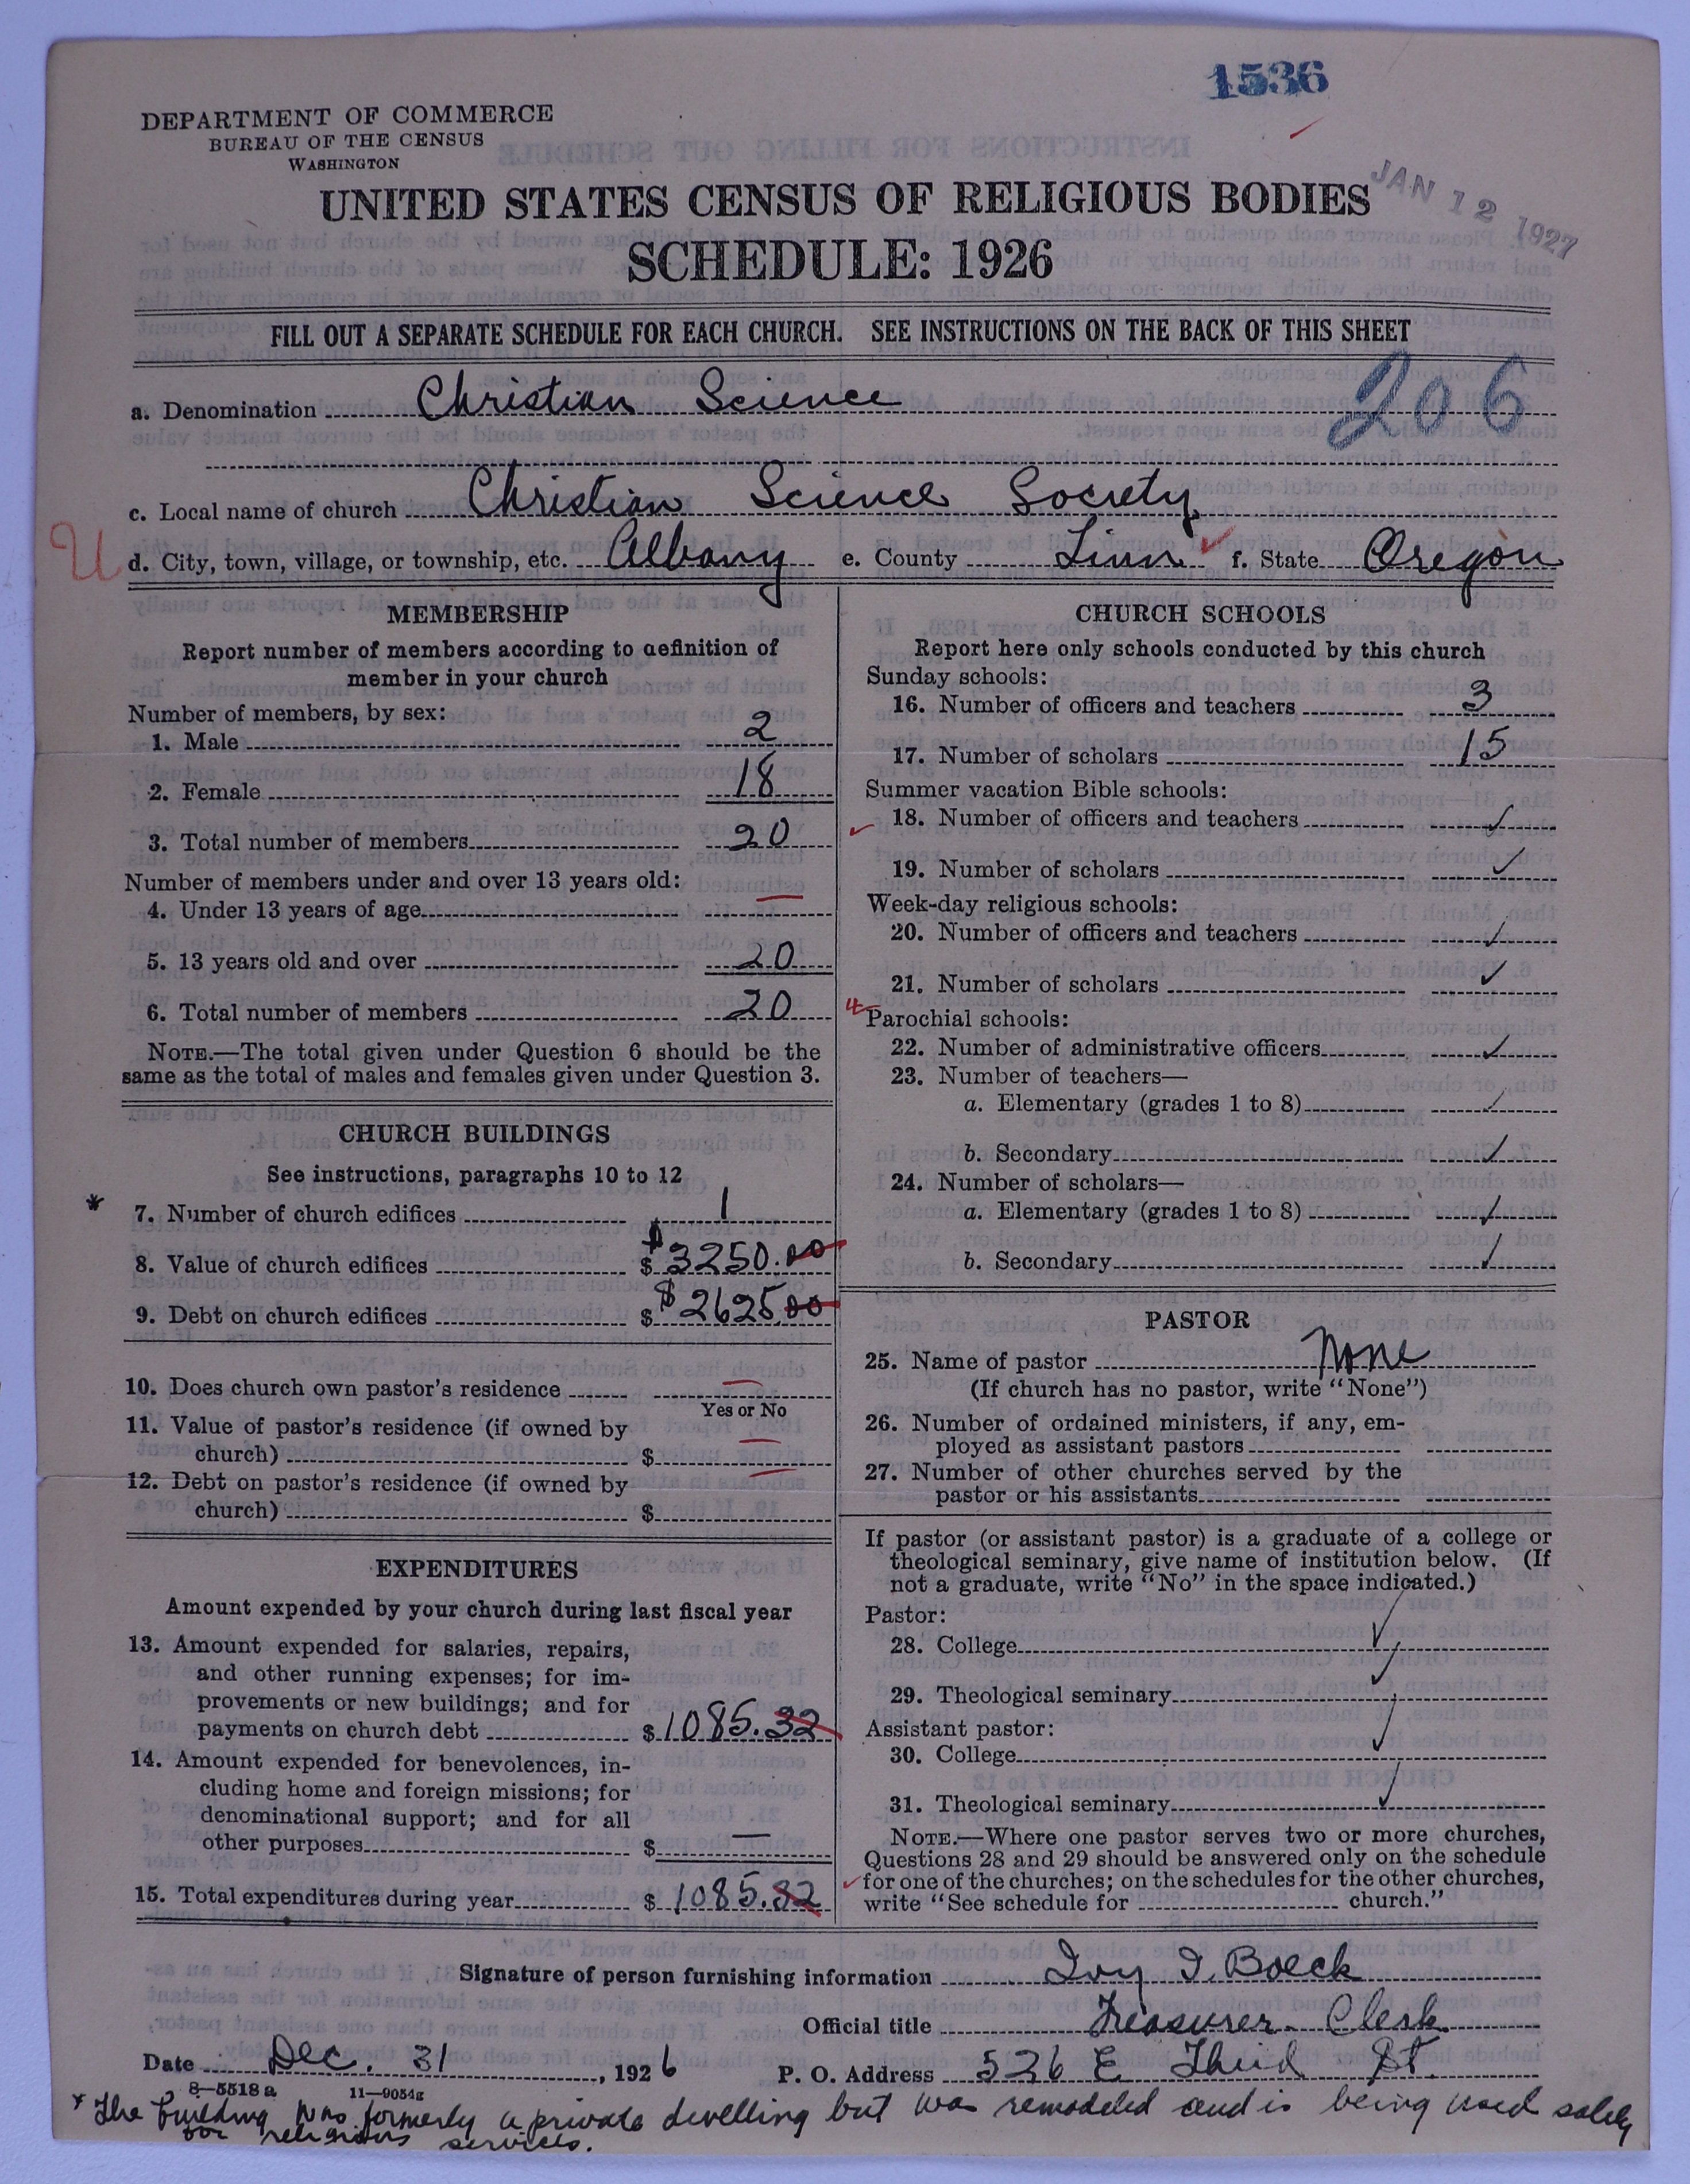 1536
DEPARTMENT OF COMMERCE
BUREAU OF THE CENSUS
WASHINGTON
JAN 12 1927
UNITED STATES CENSUS OF RELIGIOUS BODIES
SCHEDULE: 1926
FILL OUT A SEPARATE SCHEDULE FOR EACH CHURCH. SEE INSTRUCTIONS ON THE BACK OF THIS SHEET
206
a. Denomination Christian Science
c. Local name of church Christian Science Society
U
d. City, town, village, or township, etc. Albany e. County Linn f. State Oregon
MEMBERSHIP
Report number of members according to definition of
member in your church
Number of members, by sex:
1. Male 2
2. Female 18
3. Total number of members 20
Number of members under and over 13 years old:
4. Under 13 years of age —
5. 13 years old and over 20
6. Total number of members 20
NOTE.—The total given under Question 6 should be the
same as the total of males and females given under Question 3.
CHURCH BUILDINGS
See instructions, paragraphs 10 to 12
* 7. Number of church edifices 1
8. Value of church edifices $ $3250.00
9. Debt on church edifices $ $2625.00
10. Does church own pastor's residence —
Yes or No
11. Value of pastor's residence (if owned by
church) $ —
12. Debt on pastor's residence (if owned by
church) $ —
EXPENDITURES
Amount expended by your church during last fiscal year
13. Amount expended for salaries, repairs,
and other running expenses; for im-
provements or new buildings; and for
payments on church debt $ 1085.32
14. Amount expended for benevolences, in-
cluding home and foreign missions; for
denominational support; and for all
other purposes $ —
15. Total expenditures during year $ 1085.32
CHURCH SCHOOLS
Report here only schools conducted by this church
Sunday schools:
16. Number of officers and teachers 3
17. Number of scholars 15
Summer vacation Bible schools:
18. Number of officers and teachers ✓
19. Number of scholars ✓
Week-day religious schools:
20. Number of officers and teachers ✓
21. Number of scholars ✓
Parochial schools:
22. Number of administrative officers ✓
23. Number of teachers—
a. Elementary (grades 1 to 8) ✓
b. Secondary ✓
24. Number of scholars—
a. Elementary (grades 1 to 8) ✓
b. Secondary ✓
PASTOR
25. Name of pastor None
(If church has no pastor, write "None")
26. Number of ordained ministers, if any, em-
ployed as assistant pastors
27. Number of other churches served by the
pastor or his assistants
If pastor (or assistant pastor) is a graduate of a college or
theological seminary, give name of institution below. (If
not a graduate, write "No" in the space indicated.)
Pastor:
28. College ✓
29. Theological seminary ✓
Assistant pastor:
30. College ✓
31. Theological seminary ✓
NOTE.—Where one pastor serves two or more churches,
Questions 28 and 29 should be answered only on the schedule
for one of the churches; on the schedules for the other churches,
write "See schedule for church."
Signature of person furnishing information Ivy I. Boeck
Official title Treasurer. Clerk
Date Dec. 31, 1926 P. O. Address 526 E Third St.
8—5518a 11—9054g
* The building was formerly a private dwelling but was remodeled and is being used solely
for religious services.